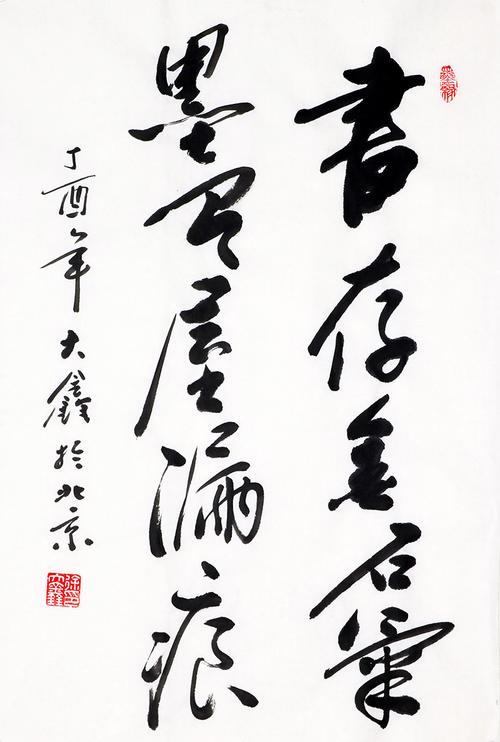 書存金石氣
墨屋漏痕
丁酉年大鑫於北京
徐印大鑫